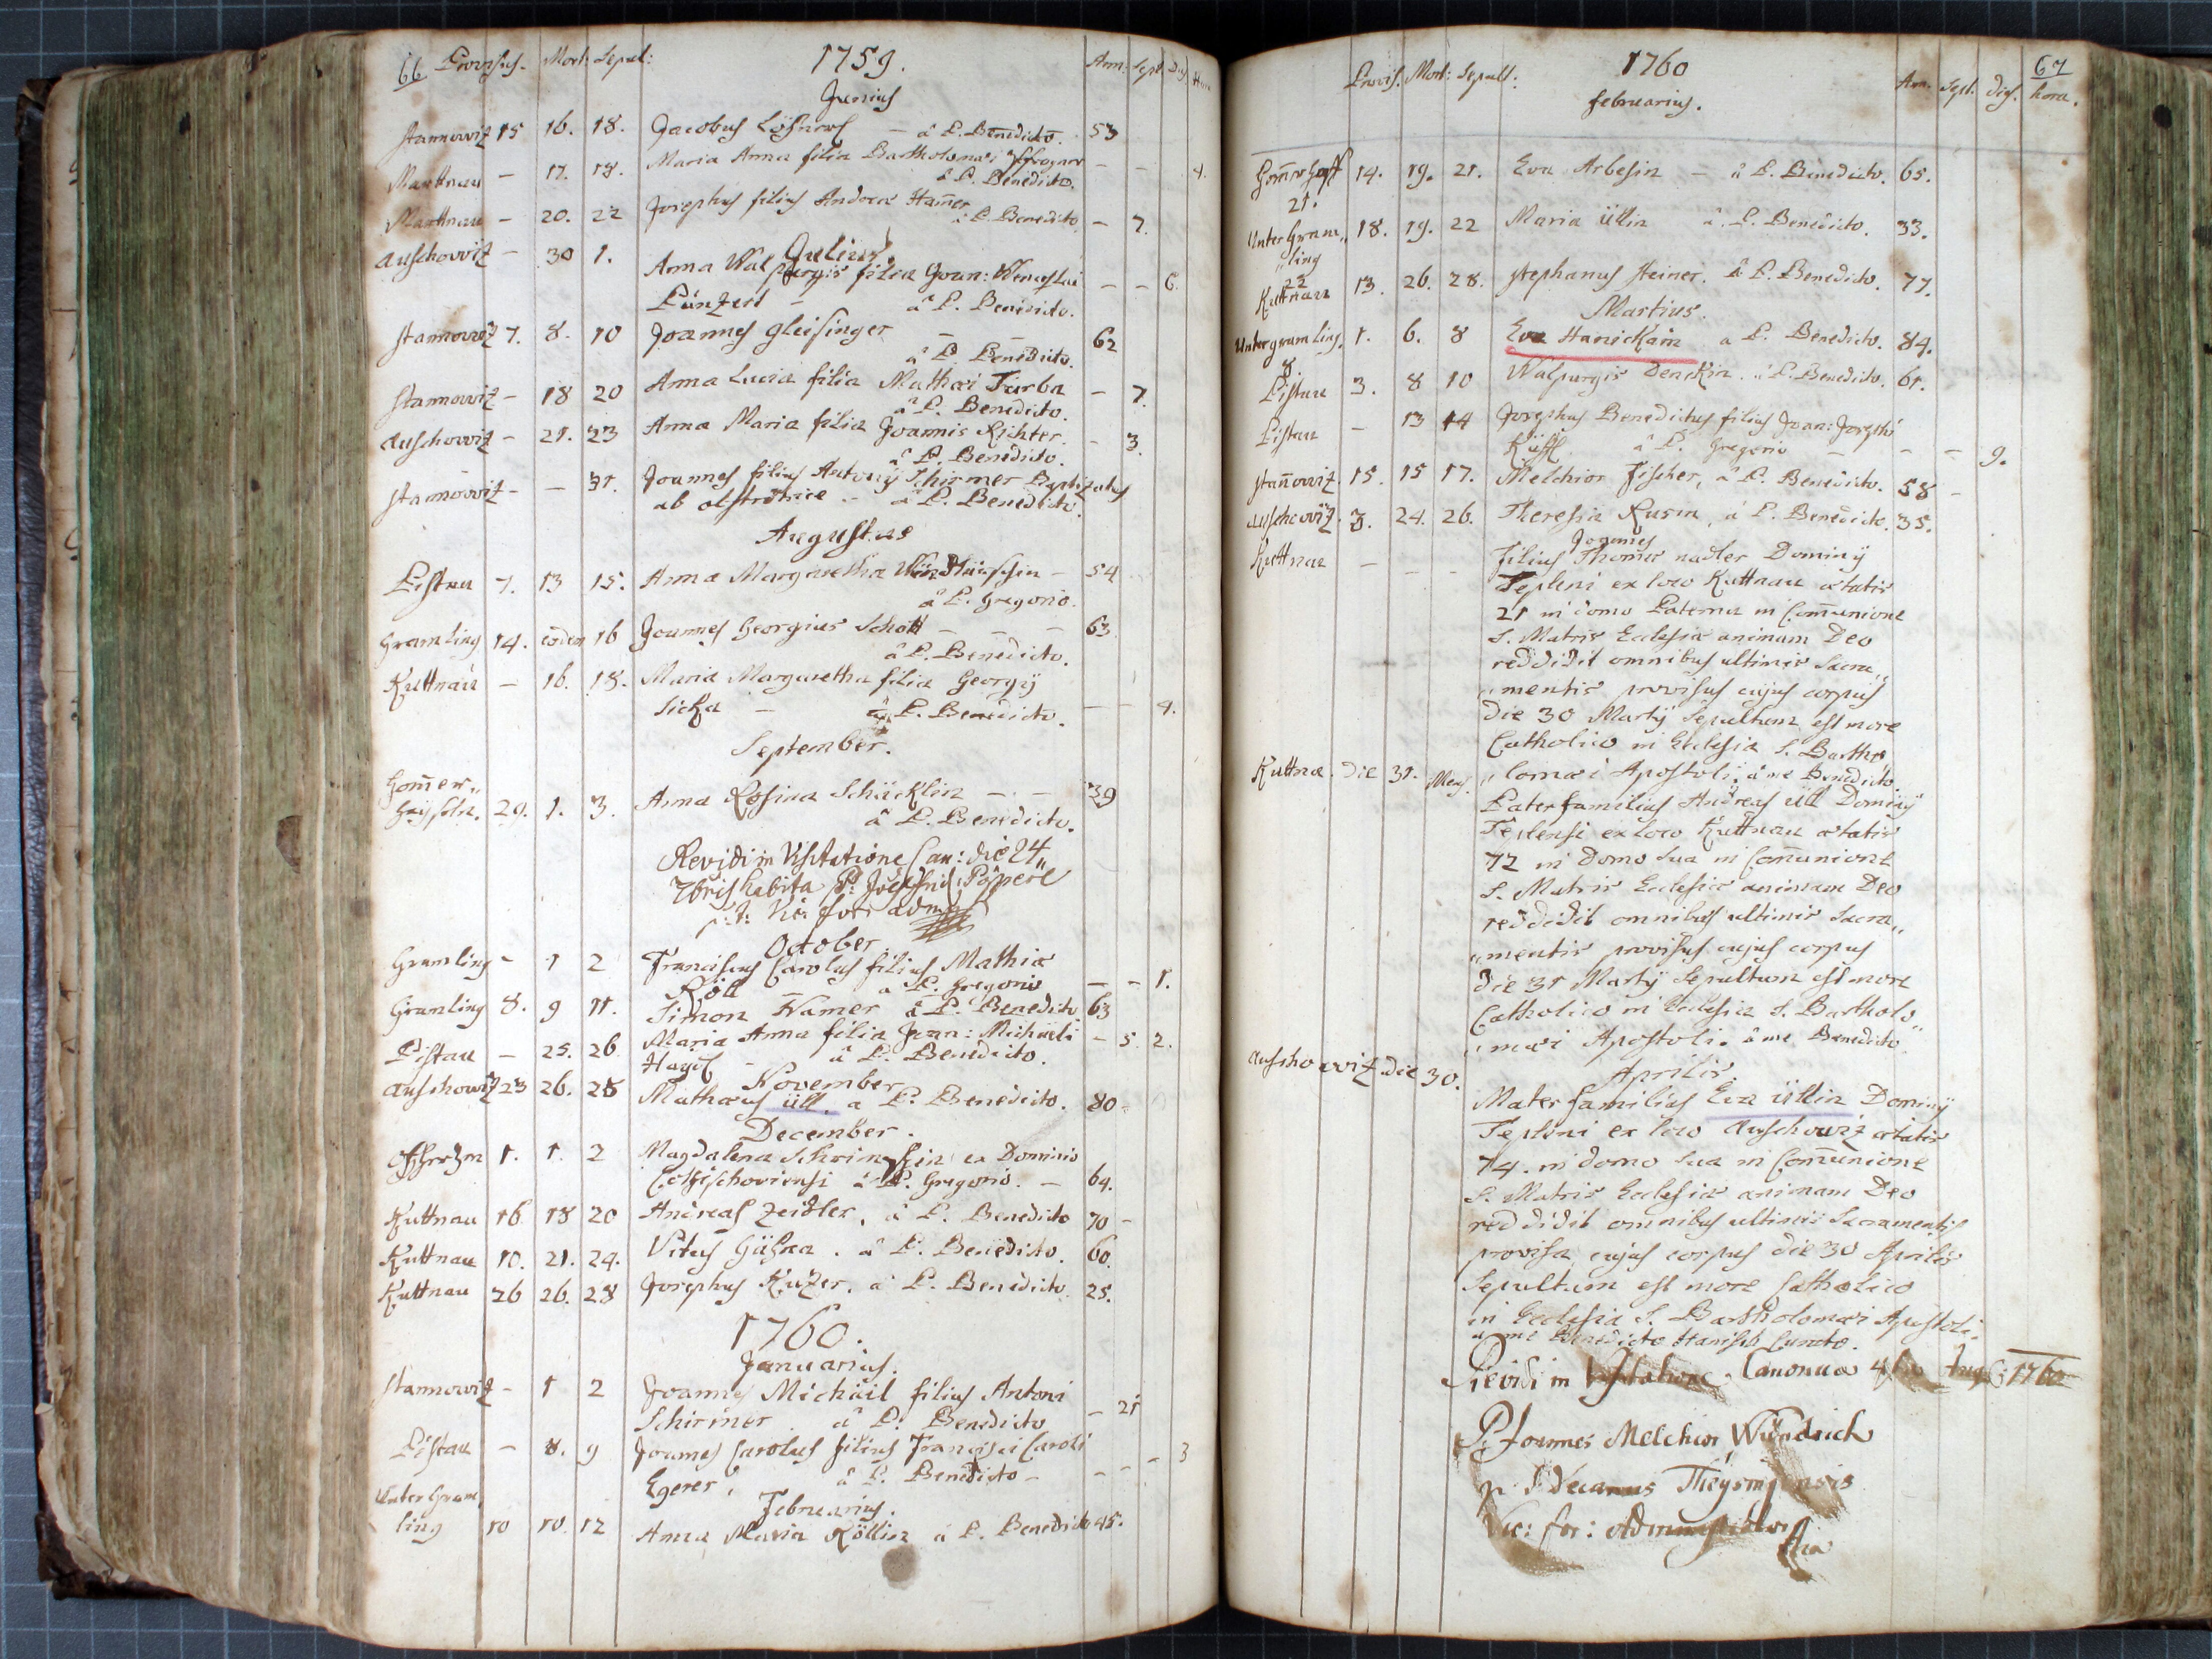 66 Provisus. Mort: Sepul: 1759. Ann. Sept. Dies
Junius
Stannowitz 15 16. 18. Jacobus Lößners - â P. Benedicto. 53
Martnau - 17. 18. Maria Anna filia Bartholomæi - - 4.
â P. Benedicto.
Martnau - 20. 22 Josephus filius Andreæ Ham̄er
â P. Benedicto - 7.
Julius.
Auschowitz - 30 1. Anna Walpurgis filia Joan: Wenceslai - - 6.
â P. Benedicto.
Stannowitz 7. 8. 10 Joannes Gleisinger - - 62
â P. Benedicto.
Stannowitz - 18 20 Anna Lucia filia Mathæi Turba - 7.
â P. Benedicto.
Auschowitz - 21. 23 Anna Maria filia Joannis Richter. - 3.
â P. Benedicto.
Stannowitz - - 31. Joannes filius Antonÿ Schirmer Baptizatus
ab obstetrice - â P. Benedicto.
Augustus
Pistau 7. 13 15. Anna Margaretha - 54
â P. Gregorio.
Gramling 14. eodem 16 Joannes Georgius Schott - - 63.
â P. Benedicto.
Kuttnau - 16. 18. Maria Margaretha filia Georgÿ
Sicka - â P. Benedicto. - - 4.
September.
Hom̄er„
29. 1. 3. Anna Rosina Schäcklin - - 39
â P. Benedicto.
Revidi in Visitatione Can: die 24„
7bris habita P.
October
Gramling - 1 2 Franciscus Carolus filius Mathiæ
Röll a P. Gregorio - - 1.
Gramling 8. 9 11. Simon Hamer â P. Benedicto 63
Pistau - 25. 26 Maria Anna filia Joan: Michaeli - 5. 2.
Hayd - â P. Benedicto.
November
Auschowitz 23 26. 28 Mathæus Üll. a P. Benedicto. 80 -
December.
1. 1. 2 Magdalena ex Dominio
â P. Gregorio. - 64.
Kuttnau 16 18 20 Andreas Zeidler, â P. Benedicto 70 -
Kuttnau 10. 21. 24. Vitus . â P. Benedicto. 60.
Kuttnau 26 26. 28 Josephus Kuzer. â P. Benedicto. 25.
1760.
Januarius.
Stannowitz - 1 2 Joannes Michäil filius Antoni
Schirmer â P. Benedicto - 21
Pistau - 8. 9 Joannes Carolus filius Francisci Caroli
Egerer, â P. Benedicto - - - - 3
Februarius.
Unter Gram„
ling 10 10. 12 Anna Maria Röllin a P. Benedicto 45.
Provis. Mort: Sepult: 1760 Ann. Sept. dies. hora. 67
februarius.
14. 19. 21. Eva Arbesin - â P. Benedicto. 65.
21.
Unter Gram„ 18. 19. 22 Maria Üllin â P. Benedicto. 33.
„ling
22
Kuttnau 13. 26. 28. Stephanus Steiner. â P. Benedicto. 77.
Martius.
Untergramling. 1. 6. 8 Eva Hanickain a P. Benedicto. 84.
8.
Pistau 3. 8 10 Walpurgis Denckin. â P. Benedicto. 61.
Pistau - 13 14 Josephus Benedictus filius Joan: Josephi
â P. Gregorio - - - 9.
Stan̄owitz. 15. 15 17. Melchior Fischer, â P. Benedicto. 58 -
Auschowitz. 3. 24. 26. Theresia Rusin, â P. Benedicto. 35.
Joannes
Kuttnau - - - filius Thomæ nadler Dominÿ
Tepleni ex loco Kuttnau ætatis
21 in domo Paterna in Com̄unione
S. Matris Ecclesiæ animam Deo
reddidit omnibus ultimis Sacra„
„mentis provisus cujus corpus
die 30 Martÿ Sepultum est more
Catholico in Ecclesia S. Bartho
„lomæi Apostoli. â me Benedicto.
Kuttna. die 31. Mens. Pater familias Andreas Üll Dominÿ
Teplensi ex loco Kuttnau ætatis
72 in Domo sua in Com̄unione
S. Matris Ecclesiæ animam Deo
reddidit omnibus ultimis Sacra„
„mentis provisus cujus corpus
die 31 Martÿ Sepultum est more
Catholico in Ecclesia S. Bartholo„
„mæi Apostoli. â me Benedicto.
Aprilis.
Auschowitz die 30. Mater familias Eva Üllin Dominÿ
Tepleni ex loco Auschowiz ætatis
74. in domo sua in Com̄unione
S. Matris Ecclesiæ animam Deo
reddidit omnibus ultimis Sacramentis
provisa cujus corpus die 30 Aprilis
Sepultum est more Catholico
in Ecclesia S. Bartholomæi Apostoli.
a me Benedicto Hanisch Curato.
Revidi in Visitatione Canonica 1760
P. Joannes Melchior Wündrich
p. t. Decanus
Vic: for: